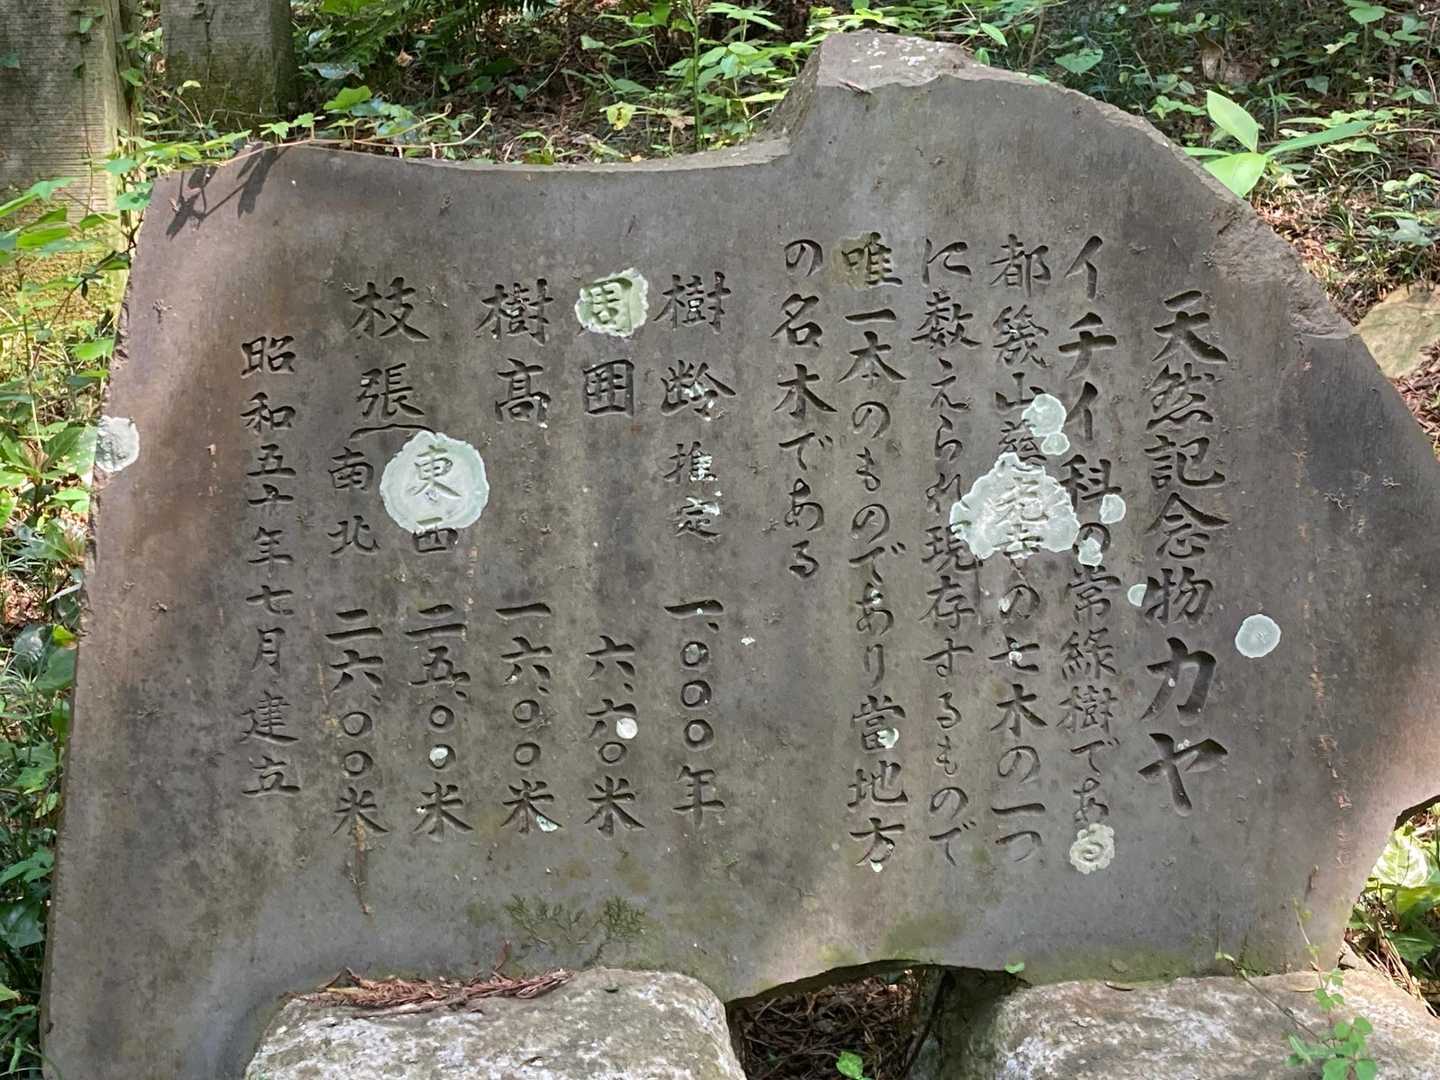 天然記念物カヤ
イチイ科の常緑樹である
都幾山慈光寺の七木の一つ
に数えられ現存するもので
唯一本のものであり當地方
の名木である
樹齢 推定 一、〇〇〇年
周囲 六、六〇米
樹高 一六、〇〇米
枝張 東西 二五、〇〇米
南北 二六、〇〇米
昭和五十年七月建立